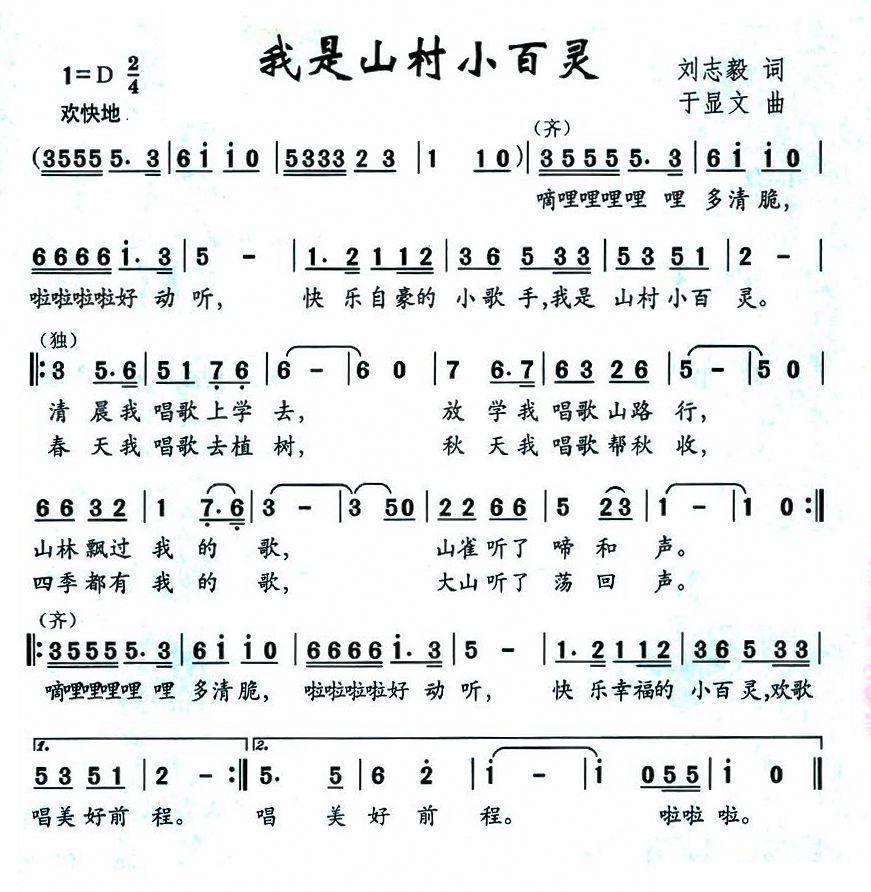 我是山村小百灵
1=D 2/4
刘志毅 词
欢快地
于显文 曲
(齐)
(3555 5. 3|6i i0|5333 2 3|1 10)|3555 5. 3|6i i0|
嘀哩哩哩哩 哩 多清脆,
6666 i. 3|5 -|1. 2 1 12|3 6 5 33|53 51|2 -|
啦啦啦啦好 动 听, 快 乐自豪的 小歌 手,我是 山村小百 灵。
(独)
‖:3 5.6|51 7 6|6 -|6 0|7 6.7|63 26|5 -|50|
清 晨我 唱歌上学 去, 放 学我 唱歌山路 行,
春 天我 唱歌去植 树, 秋 天我 唱歌帮秋 收,
66 32|1 7.6|3 -|3 50|22 66|5 23|1 -|1 0:‖
山林飘过 我 的 歌, 山雀听了 啼和 声。
四季都有 我 的 歌, 大山听了 荡回 声。
(齐)
‖:3555 5. 3|6i i0|6666 i. 3|5 -|1. 2 1 12|36 5 33|
嘀哩哩哩哩 哩 多清脆, 啦啦啦啦好 动 听, 快 乐幸福的 小百 灵,欢歌
1. 2.
53 51|2 -:‖5. 5|6 2|i -|i 055|i 0‖
唱美好前 程。 唱 美 好 前 程。 啦啦 啦。